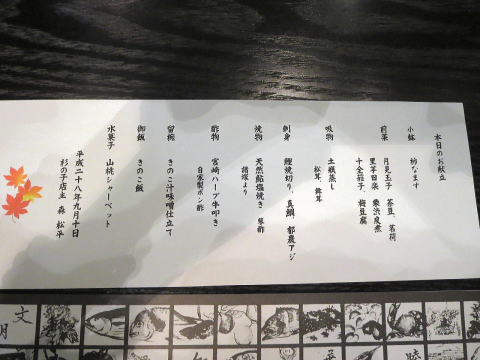 本日のお献立
小鉢 柿なます
前菜 月見玉子 茶豆、茗荷
里芋田楽 栗渋皮煮
十全茄子、梅豆腐
吸物 土瓶蒸し
松茸、舞茸
刺身 鰹焼切り、真鯛、都農アジ
焼物 天然鮎塩焼き 蓼酢
諸塚より
酢物 宮崎ハーブ牛叩き
自家製ポン酢
留椀 きのこ汁味噌仕立て
御飯 きのこ飯
水菓子 山桃シャーベット
平成二十八年九月十日
杉の子店主 森 松平
文月